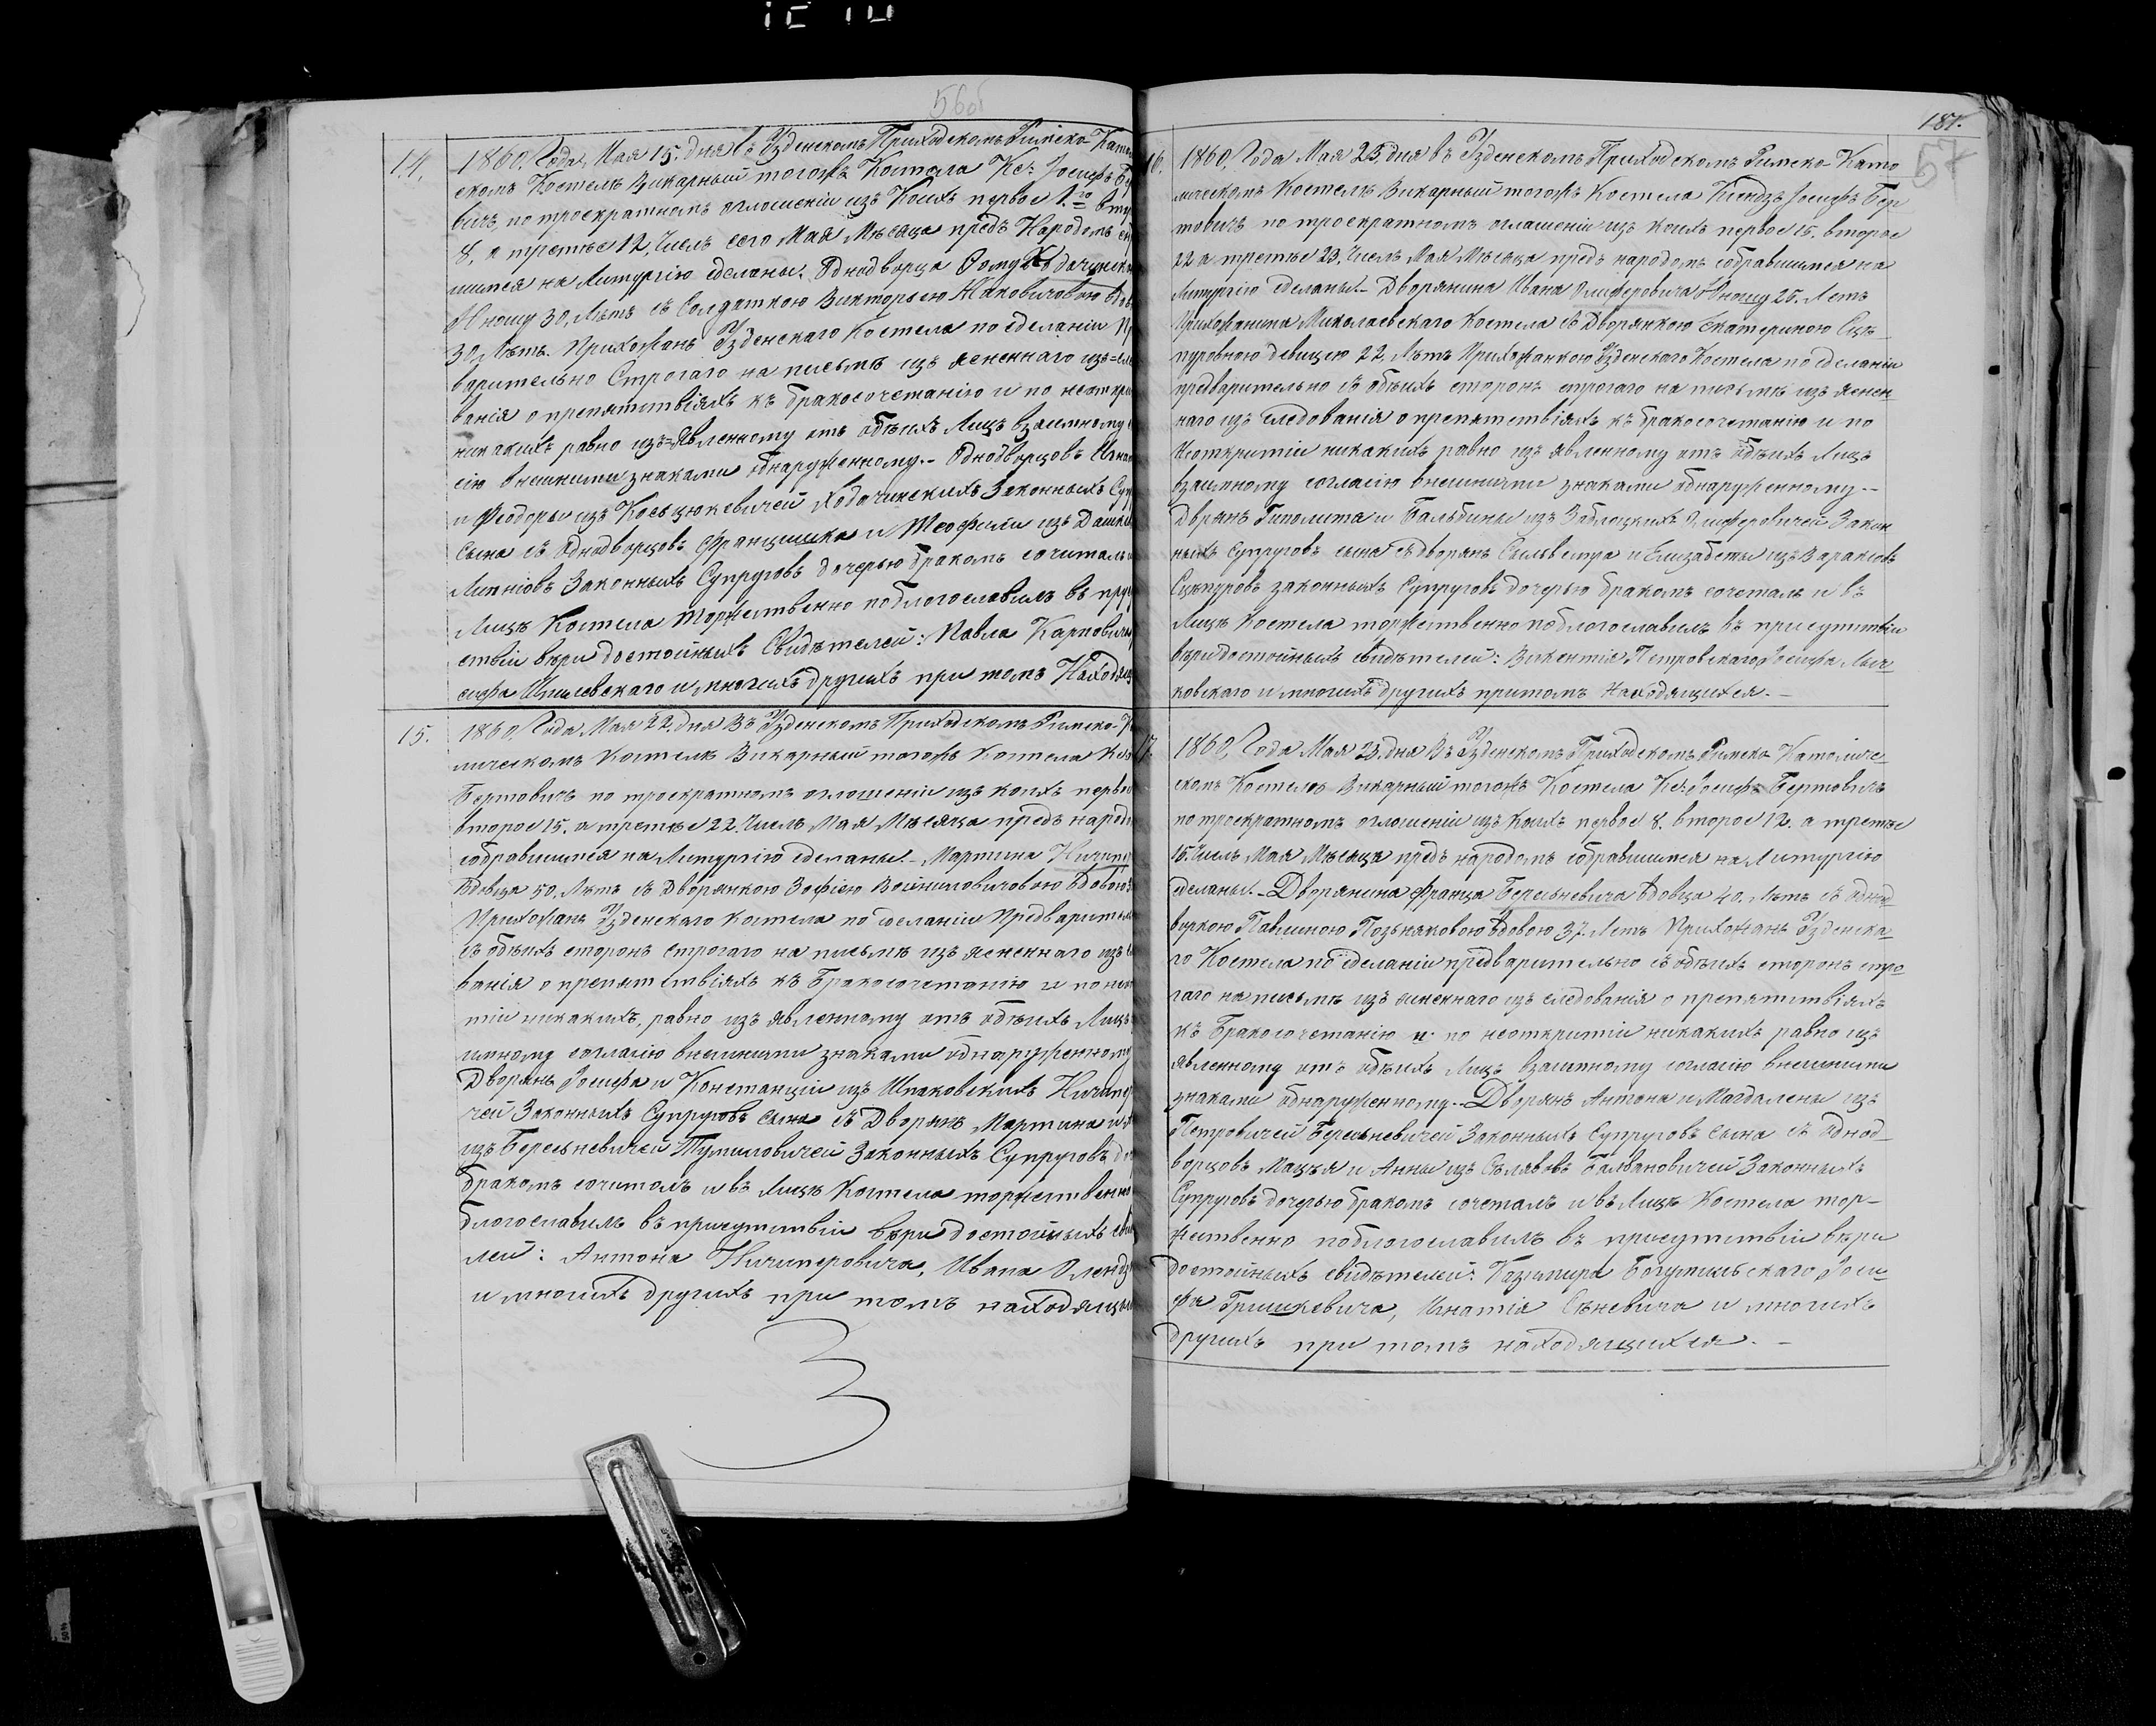 56об
14. 1860. Года, Мая 15. дня въ Узденскомъ Приходскомъ Римско-Като
скомъ Костелѣ Викарный тогожъ Костела Кс: Іосифъ Бер
вичъ, по троекратномъ оглошеніи изъ Коихъ первое 1.го вто
8, а третье 12, Числъ сего Мая Мѣсяца предъ Народомъ со
шимся на Литургію сделаны. Однодворца Фому Ходачинско
Юношу 30, Лѣтъ съ Солдаткою Викторыею Маковичовою вдов
30 Лѣтъ. Прихожанъ Узденскаго Костела по сделаніи Пр
варительно Строгаго на письмѣ изъ ясненнаго изъ=сле
ванія о препятствіяхъ къ бракосочетанію и по неоткры
никакихъ равно изъ=Явленному отъ обѣихъ Лицъ взаимному
сію внешними знаками обнаруженному.- Однодворцовъ Игна
и Феодоры изъ Косьцюкевичей Ходачинскихъ Законныхъ Суп
сына съ Однодворцовъ Францишка и Теофили изъ Дашке
Липніовъ Законныхъ Супруговъ дочерью бракомъ сочиталъ и
Лицѣ Костела торжественно поблогославилъ въ прис
ствіи вѣри достойныхъ Свидѣтелей: Павла Карповича
сифа Шилевскаго и многихъ другихъ при томъ Находящ
15. 1860. Года Мая 22. дня Въ Узденскомъ Приходскомъ Римско-К
личскомъ Костелѣ Викарный тогожъ Костела Ксе
Бертовичъ по троекратномъ оглошеніи изъ коихъ перво
второе 15. а третье 22. Числъ Мая Мѣсяца предъ народо
собравшимся на Литургію сделаны.- Мартина Ничипе
Вдовца 50. Лѣтъ съ Дворянкою Зофіею Войниловичовою вдовою
Прихожанъ Узденскаго Костела по сделаніи Предваритель
съ обѣихъ сторонъ строгаго на письмѣ изъ ясненнаго изъ с
ванія о препятствіяхъ къ Бракосочетанію и по нео
тіи никакихъ, равно изъ явленному отъ обѣихъ Лицъ
имному согласію внешними знаками обнаруженному
Дворянъ Іосифа и Констанціи изъ Шпаковскихъ Ничипе
чей Законныхъ Супруговъ сына съ Дворянъ Мартина и
изъ Бересьневичей Тумиловичей Законныхъ Супруговъ до
бракомъ сочиталъ и въ Лицѣ Костела торжественно
благославилъ въ присутствіи вѣри достойныхъ сви
лей: Антона Ничиперовича, Ивана Оленд
и многихъ другихъ при томъ находящи
187.
57
16. 1860. Года Мая 23. дня въ Узденскомъ Приходскомъ Римско Като
личскомъ Костелѣ Викарный тогожъ Костела Ксендзъ Іосифъ Бер
товичъ по троекратномъ оглашеніи изъ коихъ первое 15. второе
22 а третье 23. Числъ Мая Мѣсяца предъ народомъ собравшимся на
Литургію сделаны.- Дворянина Ивана Олиферовича Юношу 25. Летъ
Прихожанина Миколаевскаго Костела съ Дворянкою Екатериною Сцѣ-
пуровною девицею 22, Лѣтъ Прихожанкою Узденскаго Костела по сделаніи
предварительно съ обѣихъ сторонъ строгаго на письмѣ изъ яснен
наго изъ следованія о препятствіяхъ къ бракосочетанію и по
Неоткрытіи никакихъ равно изъ явленному отъ обѣихъ Лицъ
взаимному согласію внешними знаками обнаруженному.--
Дврянъ Гиполита и Бальбины изъ Заблоцкихъ Олиферовичей Закон
ныхъ Супруговъ сына съ дворянъ Сыльвестра и Елизабеты изъ Вараксовъ
Сцепуровъ законныхъ Супруговъ дочерью бракомъ сочеталъ и въ
Лицѣ Костела торжественно поблогославилъ въ присутствіи
вѣридостойныхъ свидѣтелей: Викентія Петровскаго Іосифа Лыч
ковскаго и многихъ другихъ притомъ Находящихся.-
17. 1860, Года Мая 23. дня Въ Узденскомъ Приходскомъ Римско-Католиче-
скомъ Костелѣ Викарный тогожъ Костела Кс: Іосифъ Бертовичъ
по троекратномъ оглошеніи изъ Коихъ первое 8. второе 12. а третье
15. Числъ Мая Мѣсяца предъ народомъ собравшимся на Литургію
сделаны.- Дворянина Франца Бересьневича вдовца 40. Лѣтъ съ одно-
воркою Павлиною Позьняковою вдовою 37. Летъ Прихожанъ Узденска-
го Костела по сделаніи предварительно съ обѣихъ сторонъ стро-
гаго на письмѣ изъ ясненнаго изъ следованія о препятствіяхъ
къ Бракосочетанію и по неоткрытіи никакихъ равно изъ
явленному отъ обѣихъ Лицъ взаимному согласію внешними
знаками обнаруженному.- Дворянъ Антона и Магдалены изъ
Петровичей Бересьневичей Законныхъ Супруговъ Сына съ Однод-
ворцовъ Мацѣя и Анны изъ Сѣлявовъ Балвановичей Законныхъ
Супруговъ дочерью бракомъ сочеталъ и въ Лицѣ Костела тор-
жественно поблогославилъ въ присутствіи вѣри
достойныхъ свидѣтелей: Казимира Богумильскаго Іоси-
фа Гришкевича, Игнатія Сѣневича и многихъ
другихъ при томъ находящихся.-